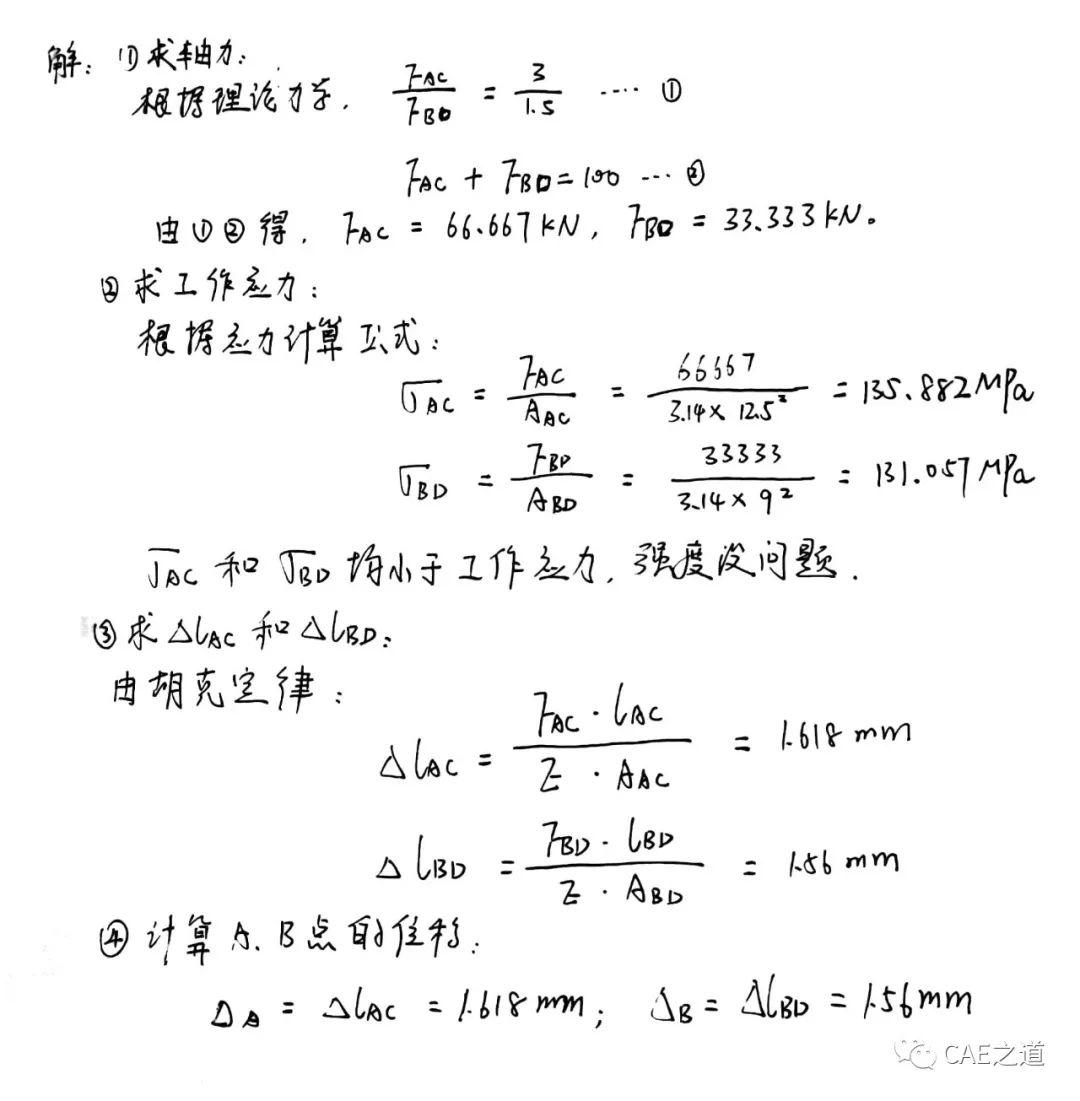 解: (1) 求轴力:
根据理论力学, F_AC / F_BD = 3 / 1.5 ···· ①
F_AC + F_BD = 100 ··· ②
由①②得, F_AC = 66.667 kN, F_BD = 33.333 kN。
② 求工作应力:
根据应力计算公式:
σ_AC = F_AC / A_AC = 66667 / 3.14 × 12.5² = 135.882 MPa
σ_BD = F_BD / A_BD = 33333 / 3.14 × 9² = 131.057 MPa
σ_AC 和 σ_BD 均小于工作应力, 强度没问题.
③ 求 Δl_AC 和 Δl_BD:
由胡克定律:
Δl_AC = F_AC · l_AC / E · A_AC = 1.618 mm
Δl_BD = F_BD · l_BD / E · A_BD = 1.56 mm
④ 计算A、B点的位移:
Δ_A = Δl_AC = 1.618 mm; Δ_B = Δl_BD = 1.56 mm
CAE之道